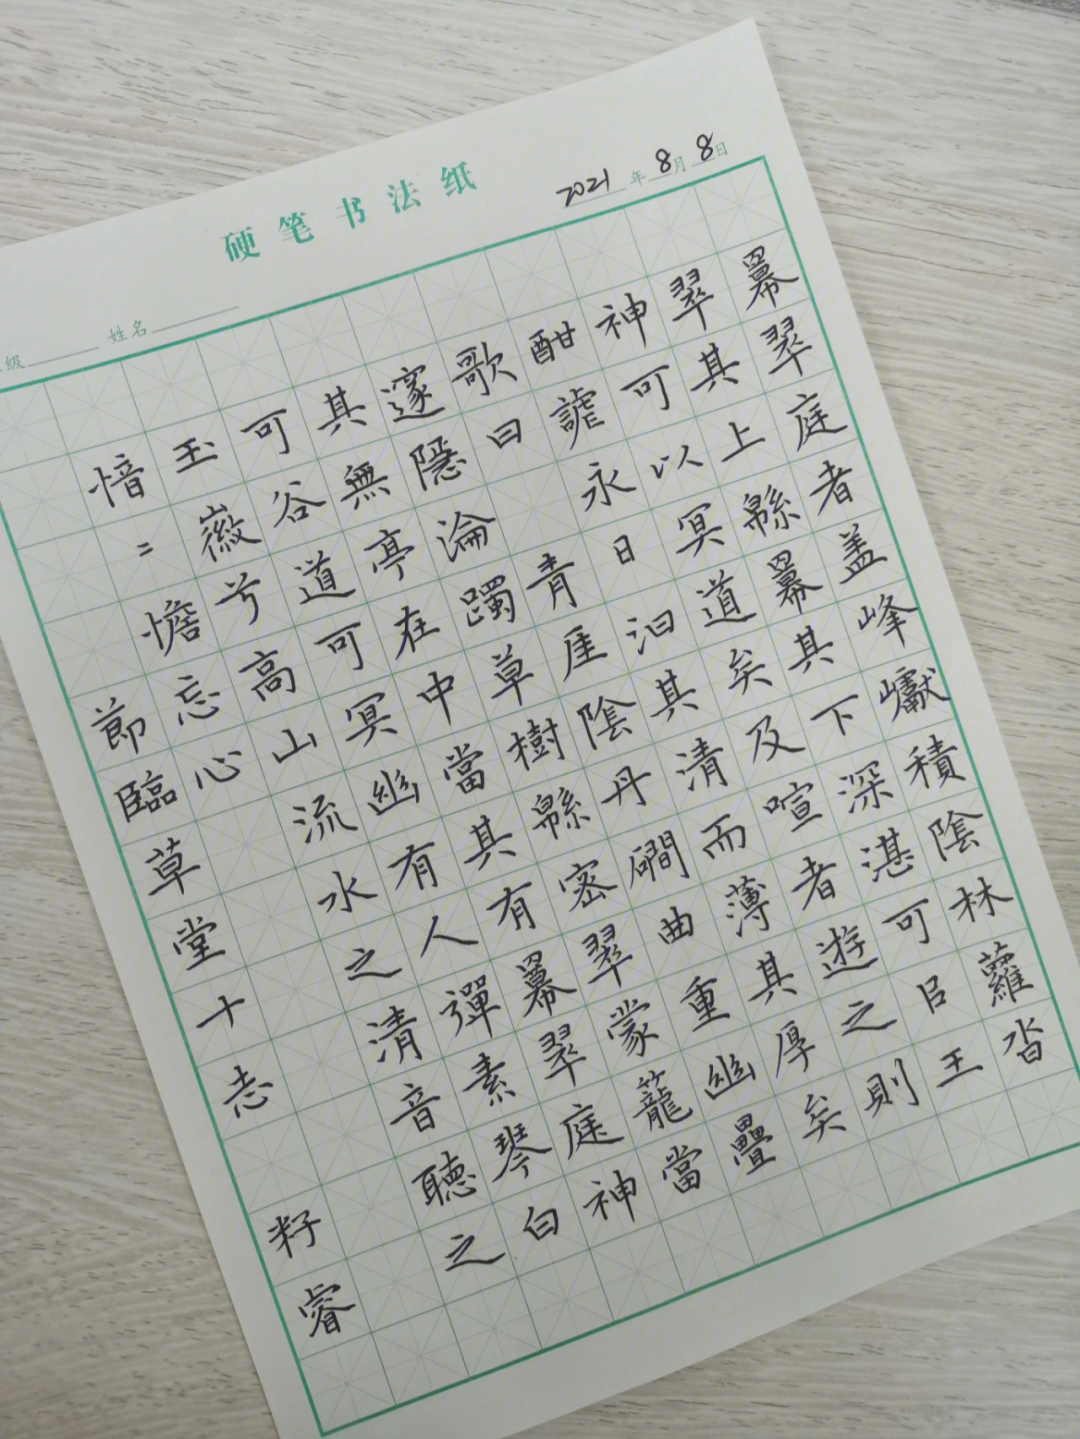 硬笔书法纸
2021年8月8日
级 姓名
羃翠庭者盖峰巘積陰林蘿沓
翠其上緜羃其下深湛可㠯王
神可以冥道矣及喧者遊之則
酣謔永日汩其清而薄其厚矣
歌曰 青厓陰丹磵曲重幽疊
邃隱淪躅草樹緜密翠蒙籠當
其無亭在中當其有羃翠庭神
可谷道可冥幽有人彈素琴白
玉徽兮高山流水之清音聽之
愔=憺忘心
節臨草堂十志 籽睿